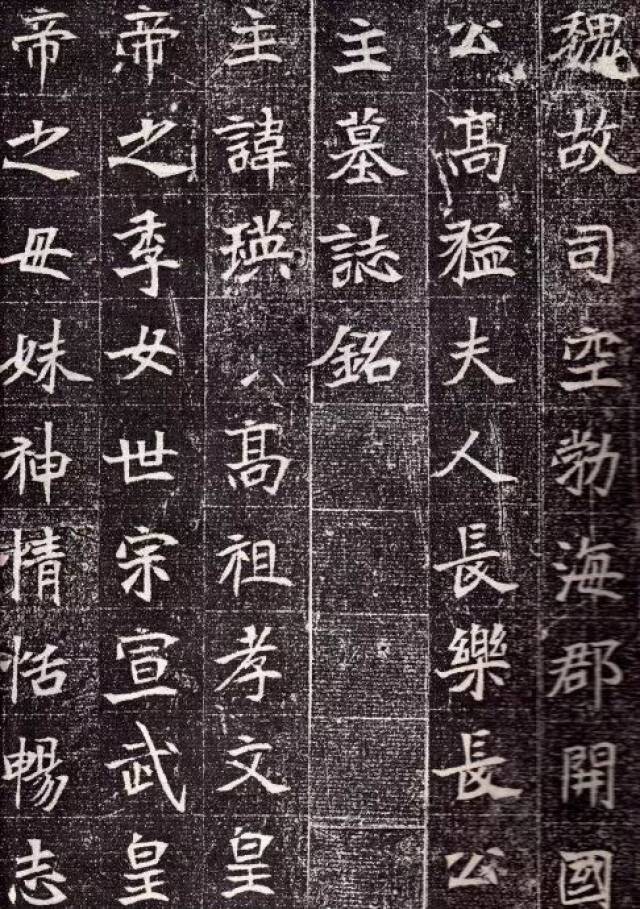 魏故司空勃海郡開國
公髙猛夫人長樂長公
主墓誌銘
主諱瑛髙祖孝文皇
帝之季女世宗宣武皇
帝之母妹神情恬暢志